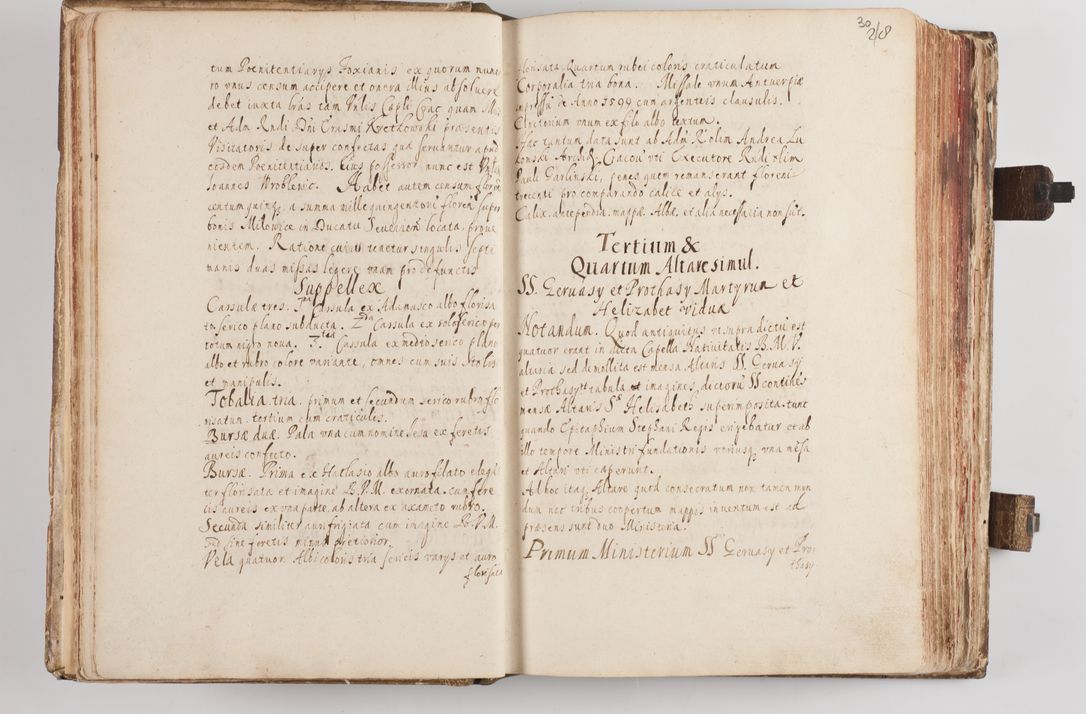 tum Poenitentiarys Foxianis ex quorum nume
ro unus censum accipere et onera illius absoluere
debet iuxta lras tam Vnlis Capli Crac quam
et Adm Rndi Dni Erasmi Kretkowski præsentis
Visitatoris de super confectas quæ seruantur apud
eosdem Poenitentiarios. Eius possessor nunc est
Ioannes Wroblenic. Habet autem censum floren
centum quinq; a summa mille quingentorū floren super
bonis Milowice in Ducatu Seuerien locata, proue
nientem. Ratione cuius tenetur singulis septi
manis duas missas legere vnam pro defunctis
Suppellex
Casulæ tres. 1ma Casula ex Adamasco albo florisa
to serico plano subducta. 2da Casula ex holoserico per
totum nigro noua. 3tia Cassula ex medio serico plano
albo et rubro colore variante, omnes cum suis stolis
et manipulis.
Tobalia tria. primum et secundum serico rubro flo
risatum. tertium cum craticulis.
Bursæ duæ. Pala una cum nomine Iesu ex feretis
aureis confecto.
Bursæ. Prima ex Hatlasio albo auro filato elegā
ter florisata et imagine B.V.M. exornata. cum fere
tis aureis ex vna parte, ab altera ex axamito rubro.
Secunda similiter aurifrigiata cum imagine B.V.M.
sed sine feretis minus pretiosior.
Vela quatuor. Albi coloris tria sericis varys et auro
florisata
30
218
florisata Quartum rubei coloris craticulatum
Corporalia tria bona. Missale vnum Antuerpiæ
impressū de Anno 1599 cum argenteis clausulis.
vnum ex filo albo textum.
Hæc tantum data sunt ab Adm R. olim Andrea Lu
konski Archid. Cracou uti Executore Rndi olim
Pauli Garlinski, penes quem remanserant floreni
trecenti pro comparando calice et alys.
Calix. antependia. mappæ. Albæ. et alia necessaria non sūt.
Tertium &
Quartum Altare simul.
SS. Geruasy et Prothasy Martyrum et
Helizabet viduæ
Notandum. Quod antiquitus ut supra dictū est
quatuor erant in dicta Capella Natiuitatis B.M.V.
altaria sed demollita est mensa Altaris SS. Geruasij
et Prothasy tabula et imagines dictorū SS contines
mensæ Altaris Sæ Helisabeth superimposita tunc
quando Epitaphium Stephani Regis erigebatur et ab
illo tempore Ministri fundationis vtriusq; vna mēsa
et Altari uti cæperunt.
Ad hoc itaq; Altare quod consecratum non tamen mun
dum nec tribus coopertum mappis inuentum est ad
præsens sunt duo Ministeria.
Primum Ministerium SS Geruasy et Pro
thasy